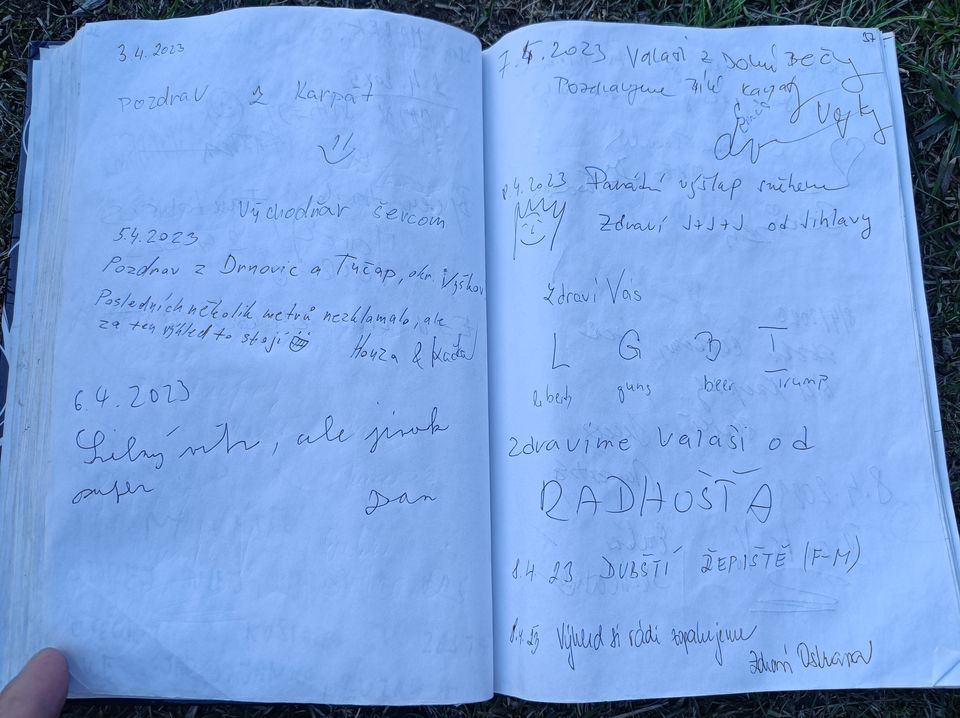 3.4.2023
Pozdrav z Karpat
Východňár ševcom
5.4.2023
Pozdrav z Drnovic a Tučap, okr. Vyškov
Posledních několik metrů nezklamalo, ale
za ten výhled to stojí
Honza & Kačka
6.4.2023
Silný vítr, ale jinak
super
Dan
57
7.4.2023 Valaši z Dolní Bečvy
Pozdravujeme
8.4.2023 Parádní výšlap sněhem
Zdraví J+J+J od Jihlavy
Zdraví Vás
L G B T
liberty guns beer Trump
Zdravíme Valaši od
RADHOŠŤA
8.4 23 DUBŠTÍ ŽEPIŠTĚ (F-M)
8.4.23 Výhled si rádi zopakujeme
Zdraví Ostrava